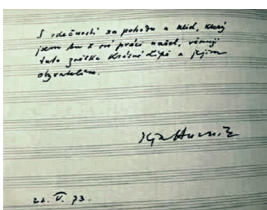 S vděčností za pohodu a klid, který
jsem tu k své práci našel, věnuji
tuto znělku Krásné Lípě a jejím
obyvatelům.
22. V. 73.